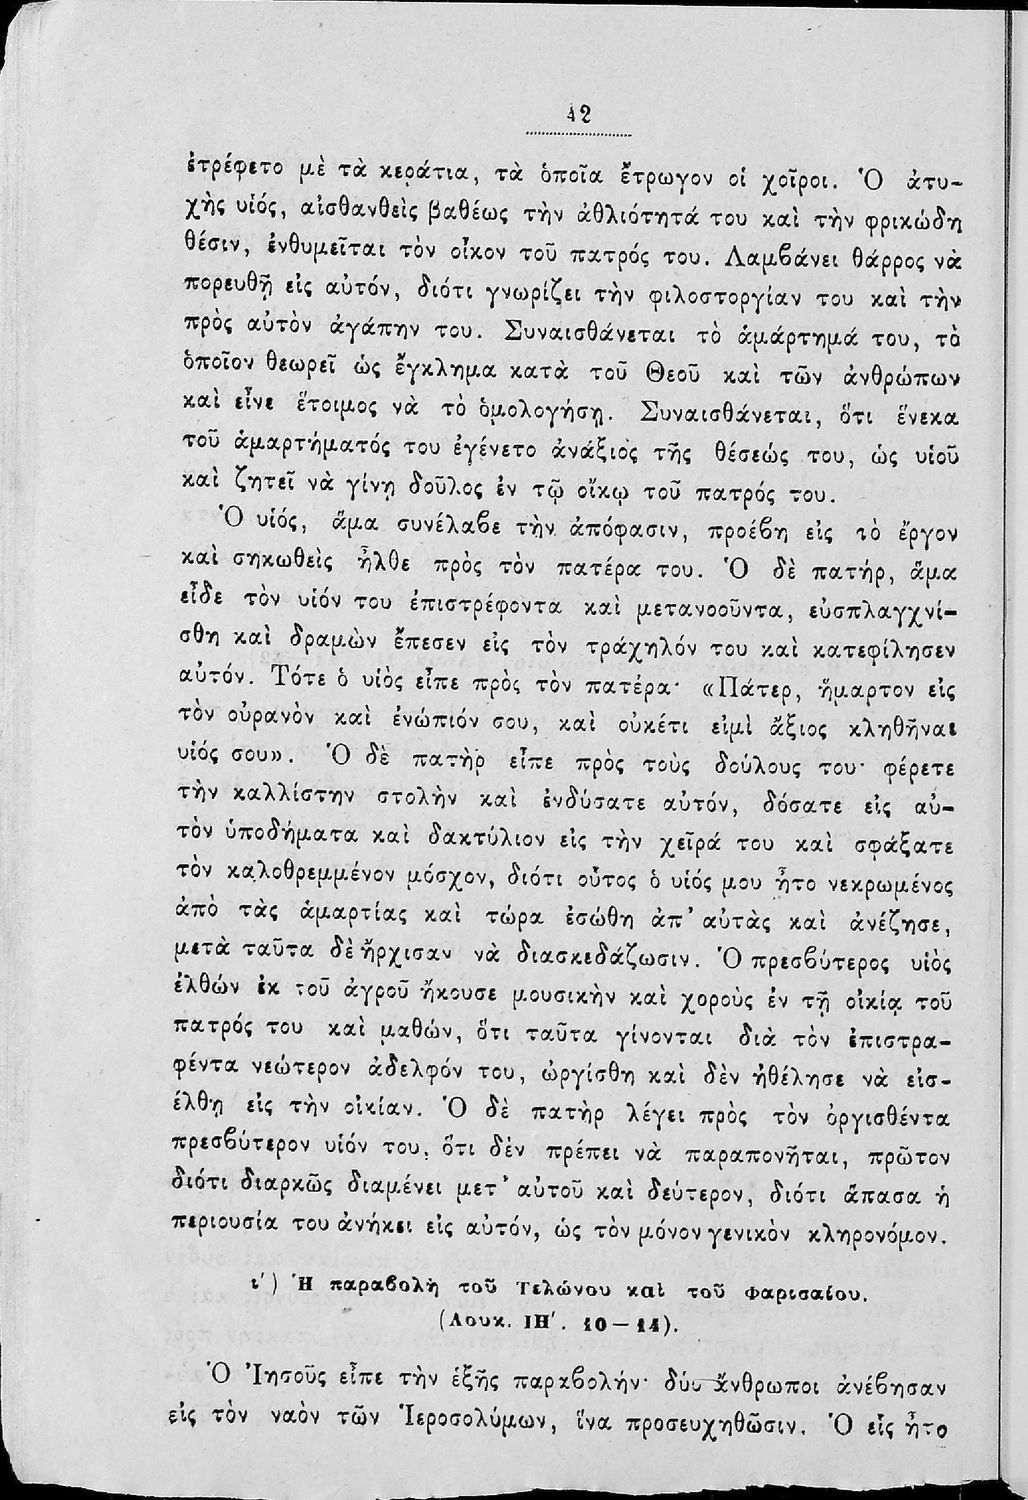 42
ἐτρέφετο μὲ τὰ κεράτια, τὰ ὁποῖα ἔτρωγον οἱ χοῖροι. Ὁ ἀτυ-
χὴς υἱός, αἰσθανθεὶς βαθέως τὴν ἀθλιότητά του καὶ τὴν φρικώδη
θέσιν, ἐνθυμεῖται τὸν οἶκον τοῦ πατρός του. Λαμβάνει θάρρος νὰ
πορευθῇ εἰς αὐτόν, διότι γνωρίζει τὴν φιλοστοργίαν του καὶ τὴν
πρὸς αὐτὸν ἀγάπην του. Συναισθάνεται τὸ ἁμάρτημά του, τὸ
ὁποῖον θεωρεῖ ὡς ἔγκλημα κατὰ τοῦ Θεοῦ καὶ τῶν ἀνθρώπων
καὶ εἶνε ἕτοιμος νὰ τὸ ὁμολογήσῃ. Συναισθάνεται, ὅτι ἕνεκα
τοῦ ἁμαρτήματός του ἐγένετο ἀνάξιος τῆς θέσεώς του, ὡς υἱοῦ
καὶ ζητεῖ νὰ γίνῃ δοῦλος ἐν τῷ οἴκῳ τοῦ πατρός του.
Ὁ υἱός, ἅμα συνέλαβε τὴν ἀπόφασιν, προέβη εἰς τὸ ἔργον
καὶ σηκωθεὶς ἦλθε πρὸς τὸν πατέρα του. Ὁ δὲ πατήρ, ἅμα
εἶδε τὸν υἱόν του ἐπιστρέφοντα καὶ μετανοοῦντα, εὐσπλαγχνί-
σθη καὶ δραμὼν ἔπεσεν εἰς τὸν τράχηλόν του καὶ κατεφίλησεν
αὐτόν. Τότε ὁ υἱὸς εἶπε πρὸς τὸν πατέρα· «Πάτερ, ἥμαρτον εἰς
τὸν οὐρανὸν καὶ ἐνώπιόν σου, καὶ οὐκέτι εἰμὶ ἄξιος κληθῆναι
υἱός σου». Ὁ δὲ πατὴρ εἶπε πρὸς τοὺς δούλους του· φέρετε
τὴν καλλίστην στολὴν καὶ ἐνδύσατε αὐτόν, δόσατε εἰς αὐ-
τὸν ὑποδήματα καὶ δακτύλιον εἰς τὴν χεῖρά του καὶ σφάξατε
τὸν καλοθρεμμένον μόσχον, διότι οὗτος ὁ υἱός μου ἦτο νεκρωμένος
ἀπὸ τὰς ἁμαρτίας καὶ τώρα ἐσώθη ἀπ' αὐτὰς καὶ ἀνέζησε,
μετὰ ταῦτα δὲ ἤρχισαν νὰ διασκεδάζωσιν. Ὁ πρεσβύτερος υἱὸς
ἐλθών ἐκ τοῦ ἀγροῦ ἤκουσε μουσικὴν καὶ χοροὺς ἐν τῇ οἰκίᾳ τοῦ
πατρός του καὶ μαθών, ὅτι ταῦτα γίνονται διὰ τὸν ἐπιστρα-
φέντα νεώτερον ἀδελφόν του, ὠργίσθη καὶ δὲν ἠθέλησε νὰ εἰσ-
έλθῃ εἰς τὴν οἰκίαν. Ὁ δὲ πατὴρ λέγει πρὸς τὸν ὀργισθέντα
πρεσβύτερον υἱόν του, ὅτι δὲν πρέπει νὰ παραπονῆται, πρῶτον
διότι διαρκῶς διαμένει μετ' αὐτοῦ καὶ δεύτερον, διότι ἅπασα ἡ
περιουσία του ἀνήκει εἰς αὐτόν, ὡς τὸν μόνον γενικὸν κληρονόμον.
ι') Ἡ παραβολὴ τοῦ Τελώνου καὶ τοῦ Φαρισαίου.
(Λουκ. ΙΗ'. 10—14).
Ὁ Ἰησοῦς εἶπε τὴν ἑξῆς παραβολήν· δύο ἄνθρωποι ἀνέβησαν
εἰς τὸν ναὸν τῶν Ἱεροσολύμων, ἵνα προσευχηθῶσιν. Ὁ εἷς ἦτο